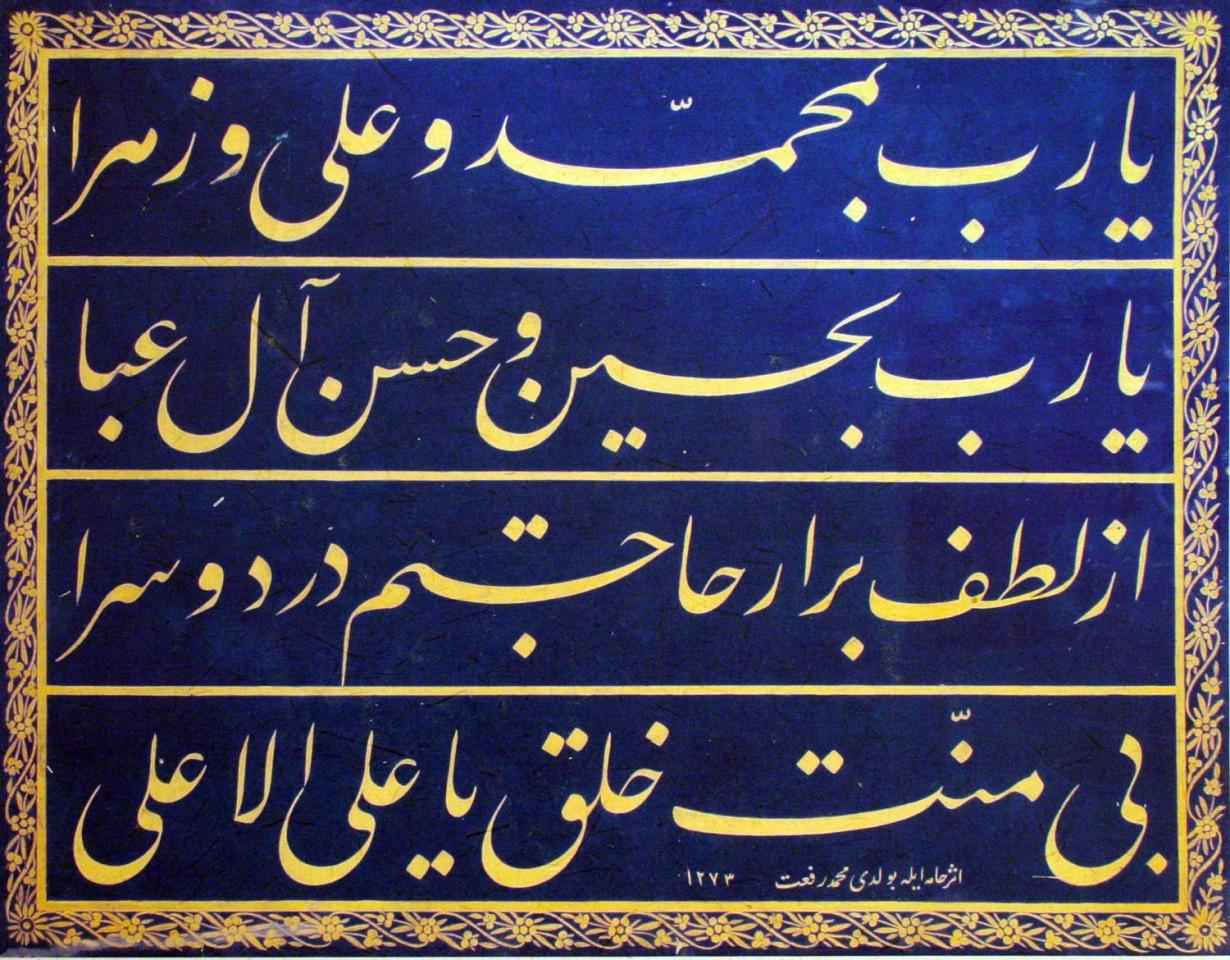 یا رب بمحمّد و علی و زهرا
یا رب بحسین و حسن آل عبا
از لطف برار حاجتم در دو سرا
بی منّت خلق یا علی الاعلی
اثر خامه ایله بولدی محمد رفعت ١٢٧٣